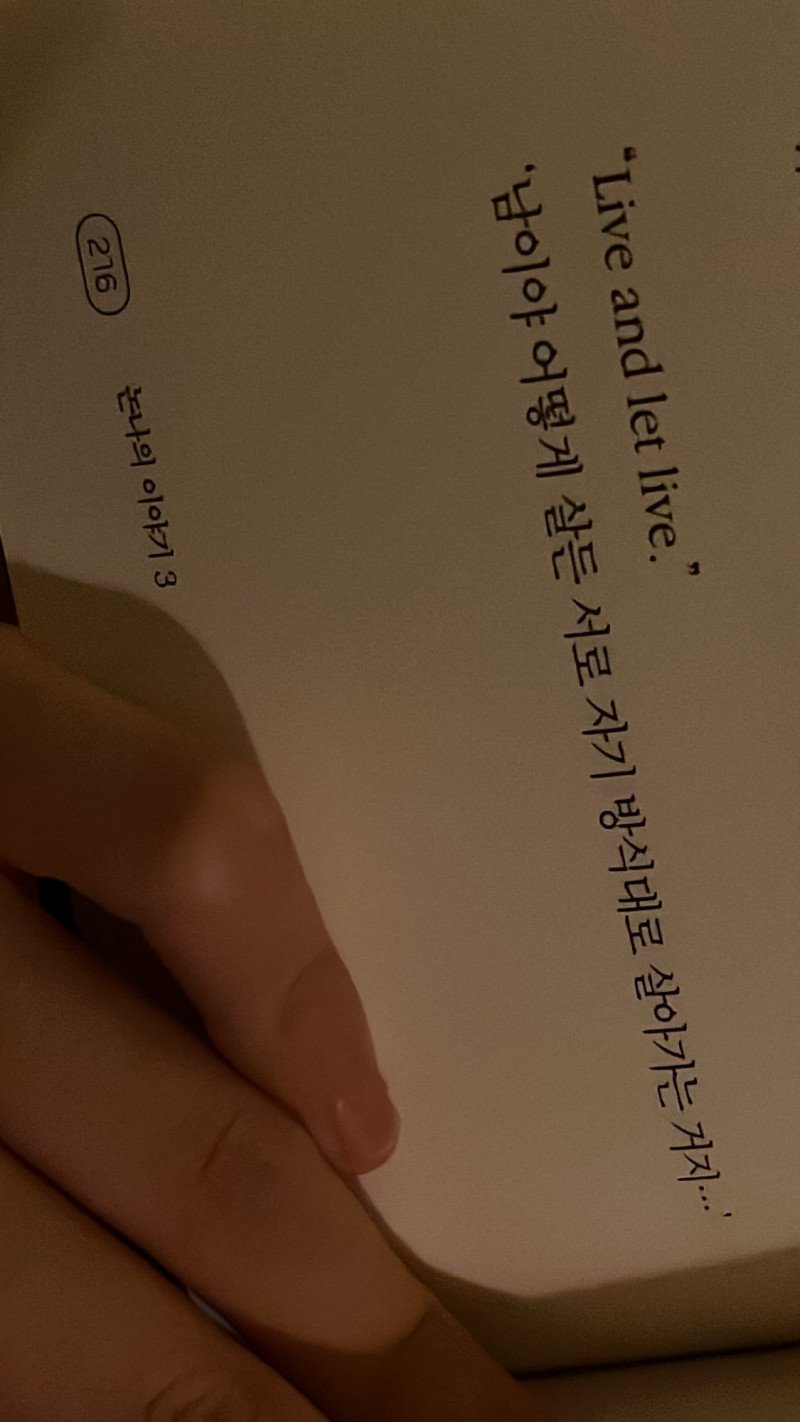 “Live and let live.”
‘남이야 어떻게 살든 서로 자기 방식대로 살아가는 거지…’
216 논나의 이야기 3